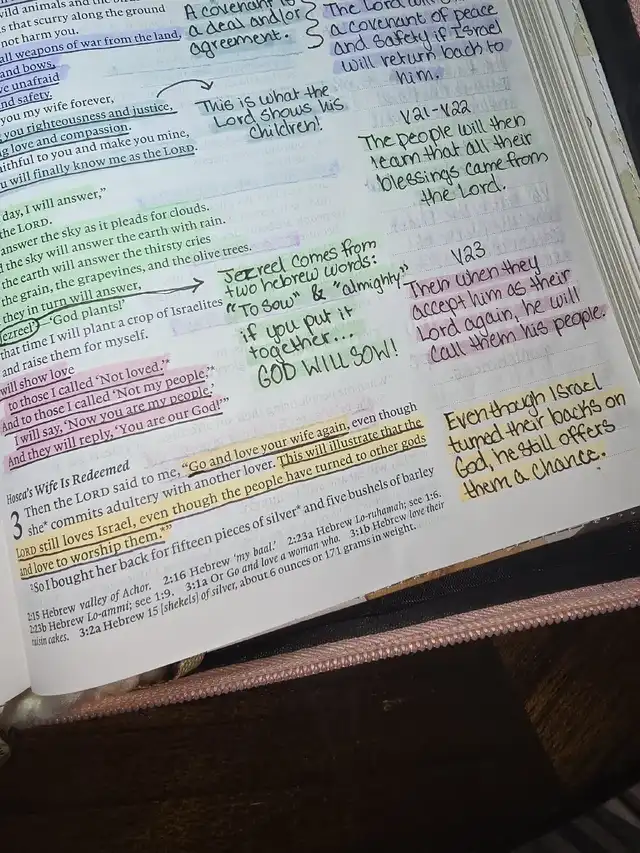 wild animals and the birds
als that scurry along the ground
not harm you.
all weapons of war from the land,
and bows,
ve unafraid
nd safety.
you my wife forever,
you righteousness and justice,
g love and compassion.
aithful to you and make you mine,
u will finally know me as the LORD.
day, I will answer,”
the LORD.
answer the sky as it pleads for clouds.
the sky will answer the earth with rain.
the earth will answer the thirsty cries
the grain, the grapevines, and the olive trees.
they in turn will answer,
ezreel’—‘God plants!’
that time I will plant a crop of Israelites
and raise them for myself.
will show love
to those I called ‘Not loved.’
And to those I called ‘Not my people,’
I will say, ‘Now you are my people.’
And they will reply, ‘You are our God!’”
Hosea’s Wife Is Redeemed
3 Then the LORD said to me, “Go and love your wife again, even though
she* commits adultery with another lover. This will illustrate that the
LORD still loves Israel, even though the people have turned to other gods
and love to worship them.*”
2So I bought her back for fifteen pieces of silver* and five bushels of barley
2:15 Hebrew valley of Achor. 2:16 Hebrew ‘my baal.’ 2:23a Hebrew Lo-ruhamah; see 1:6.
2:23b Hebrew Lo-ammi; see 1:9. 3:1a Or Go and love a woman who. 3:1b Hebrew love their
raisin cakes. 3:2a Hebrew 15 [shekels] of silver, about 6 ounces or 171 grams in weight.
A covenant is
a deal and/or
agreement.
This is what the
Lord shows his
children!
Jezreel comes from
two hebrew words:
“To sow” & “almighty”
if you put it
together...
GOD WILL SOW!
The Lord will
a covenant of peace
and safety if Israel
will return back to
him.
V21-V22
The people will then
learn that all their
blessings came from
the Lord.
V23
Then when they
accept him as their
Lord again, he will
call them his people.
Even though Israel
turned their backs on
God, he still offers
them a chance.